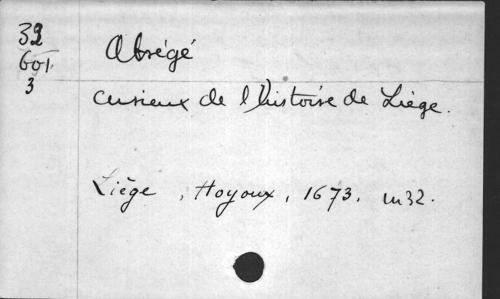 32
601
3
Abrégé
curieux de l'histoire de Liège.
Liège, Hoyoux, 1673. in 32.